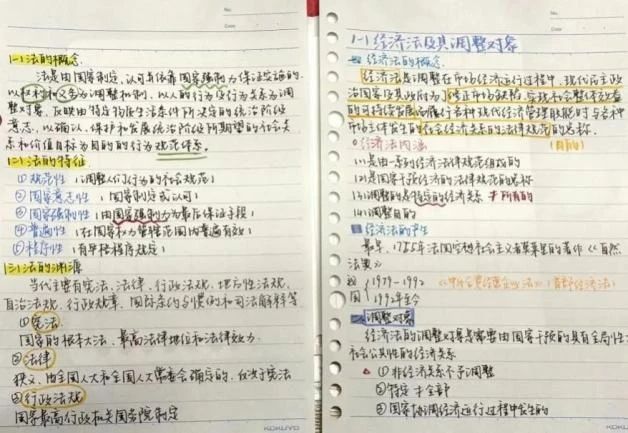 No.
Date
(一)法的概念
法是由国家制定、认可并依靠国家强制力保证实施的,
以权利和义务为调整机制,以人的行为及行为关系为调
整对象,反映由特定物质生活条件所决定的统治阶级
意志,以确认、保护和发展统治阶级所期望的社会关
系和价值目标为目的的行为规范体系。
(二)法的特征
①规范性(调整人们行为的社会规范)
②国家意志性(国家制定或认可)
③国家强制性(由国家强制力为最后保证手段)
④普遍性(在国家权力管辖范围内普遍有效)
⑤程序性(有严格程序规定)
(三)法的渊源
当代主要有宪法、法律、行政法规、地方性法规、
自治法规、行政规章、国际条约与惯例和司法解释等
①宪法
国家的根本大法、最高法律地位和法律效力
②法律
狭义,由全国人大和全国人大常委会制定的,仅次于宪法
③行政法规
国家最高行政机关国务院制定
KOKUYO
No.
Date
1-1 经济法及其调整对象
经济法的概念
经济法是调整在市场经济运行过程中,现代民主政
治国家及其政府为了修正市场缺陷、实现社会整体效益
的可持续发展而履行各种现代经济管理职能时与各种
市场主体发生的社会经济关系的法律规范的总称。
(目的)
经济法内涵
(1)是由一系列经济法律规范组成的
(2)是国家干预经济的法律规范的总称
(3)调整的是特定的经济关系 ≠所有的
(4)调整目的
经济法的产生
最早,1755年法国空想社会主义者莫莱里的著作《自然
法典》
我 1979-1992
国 1992年至今
调整对象
经济法的调整对象是需要由国家干预的具有全局性、
社会公共性的经济关系
①非经济关系不予调整
②特定≠全部
③国家协调经济运行过程中发生的
KOKUYO